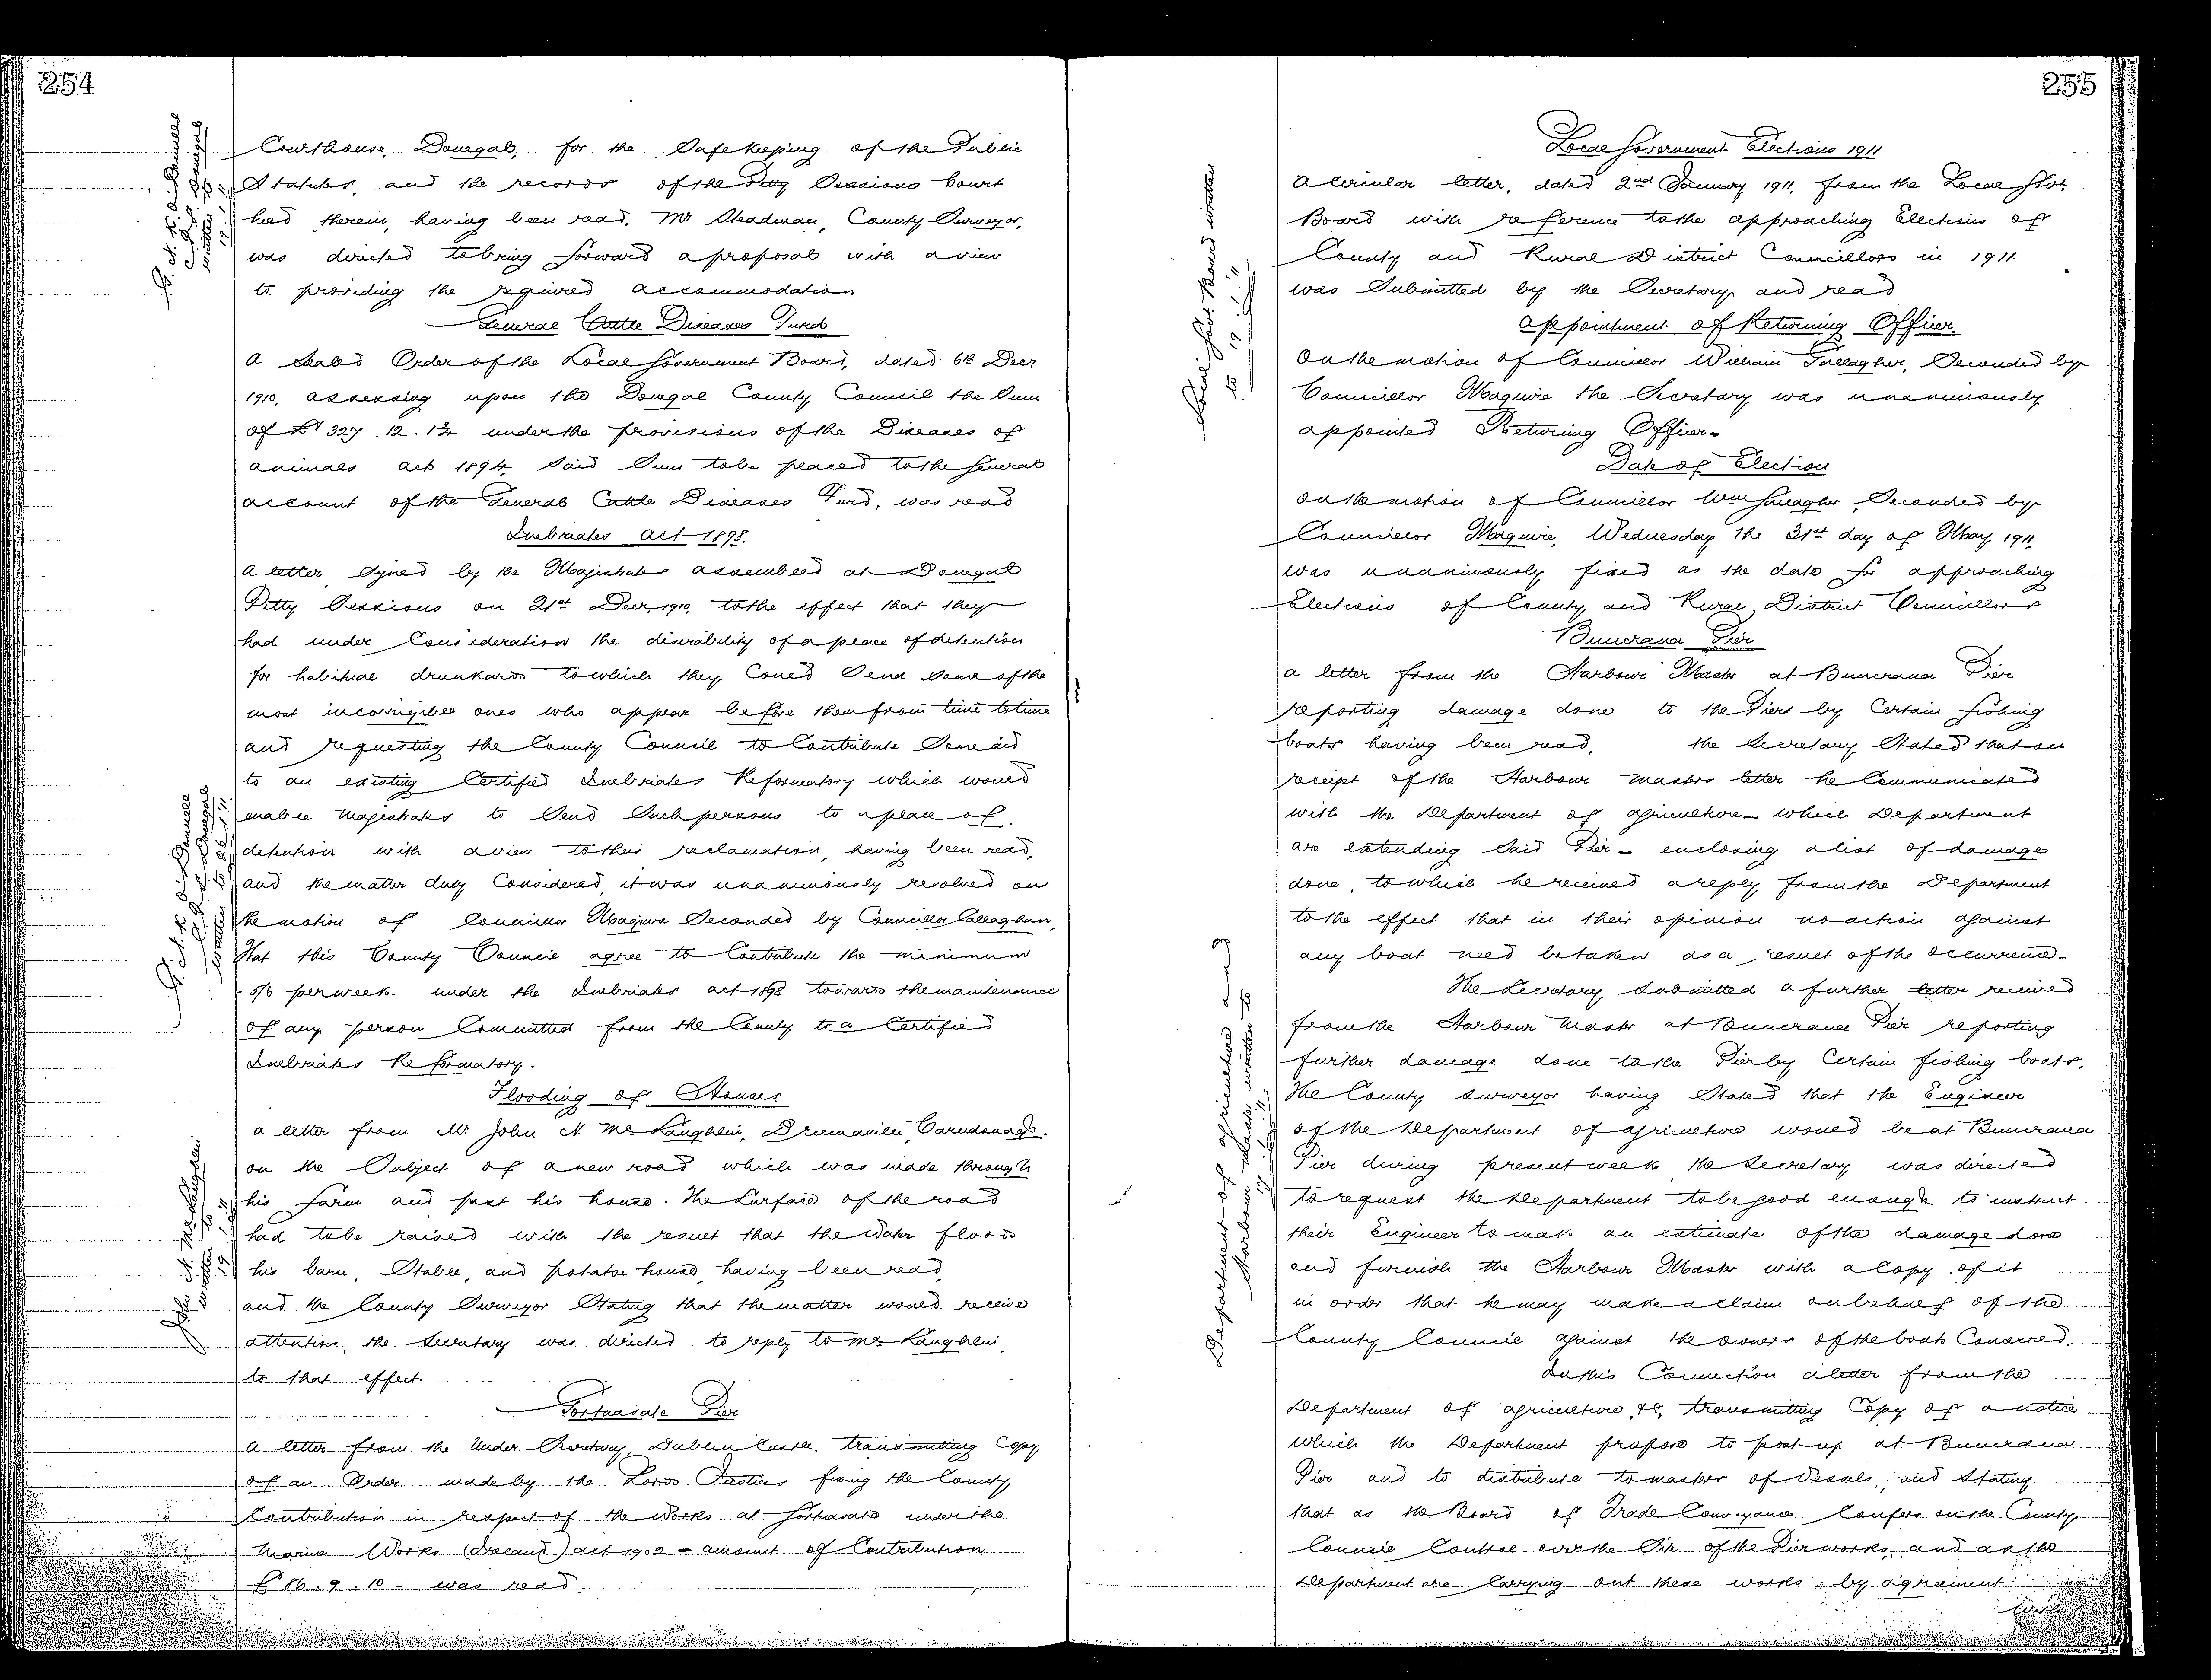 254
Courthouse, Donegal, for the Safekeeping of the Public
Statutes, and the records of the Petty Sessions Court
held therein, having been read, Mr Steadman, County Surveyor,
was directed to bring forward a proposal with a view
to providing the required accommodation
General Cattle Diseases Fund
A Sealed Order of the Local Government Board, dated 6th Decr
1910, assessing upon the Donegal County Council the Sum
of £327.12.1 under the provisions of the Diseases of
Animals Act 1894, Said Sum to be placed to the General
account of the General Cattle Diseases Fund, was read
Inebriates Act 1898.
A letter Signed by the Magistrates assembled at Donegal
Petty Sessions on 21st Decr, 1910, to the effect that they
had under Consideration the desirability of a place of detention
for habitual drunkards to which they Could Send Some of the
most incorrigible ones who appear before them from time to time
and requesting the County Council to Contribute Some aid
to an existing Certified Inebriates Reformatory which would
enable Magistrates to Send Such persons to a place of
detention with a view to their reclamation, having been read,
and the matter duly Considered, it was unanimously resolved on
the motion of Councillor Maguire Seconded by Councillor Callaghan,
That this County Council agree to Contribute the minimum
5/6 per week. under the Inebriates Act 1898 towards the maintenance
of any person Committed from the County to a Certified
Inebriates Reformatory.
Flooding of Houses
A letter from Mr John N. McLaughlin, Drumaville, Carndonagh.
on the Subject of a new road which was made through
his farm and past his house. The Surface of the road
had to be raised with the result that the Water floods
his barn, Stable, and potatoe house, having been read,
and the County Surveyor Stating that the matter would receive
attention, the Secretary was directed to reply to McLaughlin,
to that effect.
Portnasale Pier
A letter from the Under Secretary, Dublin Castle, transmitting Copy
of an Order made by the Lords Justices fixing the County
Contribution in respect of the Works at Portnasale under the
Marine Works (Ireland) Act 1902 - amount of Contribution
£86.9.10 - was read
John N. McLaughlin
written
255
Local Government Elections 1911
A circular letter, dated 2nd January 1911, from the Local Govt
Board with reference to the approaching Elections of
County and Rural District Councillors in 1911
was Submitted by the Secretary and read
Appointment of Returning Officer.
On the motion of Councillor William Gallagher, Seconded by
Councillor Maguire the Secretary was unanimously
appointed Returning Officer.
Date of Election
On the motion of Councillor Wm Gallagher Seconded by
Councillor Maguire, Wednesday the 31st day of May 1911,
was unanimously fixed as the date for approaching
Elections of County and Rural District Councillors
Buncrana Pier
A letter from the Harbour Master at Buncrana Pier
reporting damage done to the Piers by Certain fishing
boats having been read, the Secretary Stated that on
receipt of the Harbour Masters letter he Communicated
with the Department of Agriculture - which Department
are extending Said Pier - enclosing a list of damage
done, to which he received a reply from the Department
to the effect that in their opinion no action against
any boat need be taken as a result of the occurrence.
The Secretary Submitted a further letter received
from the Harbour Master at Buncrana Pier reporting
further damage done to the Pier by Certain fishing boats.
The County Surveyor having Stated that the Engineer
of the Department of Agriculture would be at Buncrana
Pier during present week the Secretary was directed
to request the Department to be good enough to instruct
their Engineer to make an estimate of the damage done
and furnish the Harbour Master with a Copy of it
in order that he may make a claim on behalf of the
County Council against the owners of the boats Concerned.
In this Connection a letter from the
Department of Agriculture, &c, transmitting Copy of a notice
which the Department propose to post up at Buncrana
Pier and to distribute to masters of Vessels, and Stating
that as the Board of Trade Conveyance Confers on the County
Council Control over the Site of the Pier works, and as the
Department are Carrying out these works by agreement
with
Local Govt Board written
19.1.11
Department of Agriculture and
Harbour Master written to